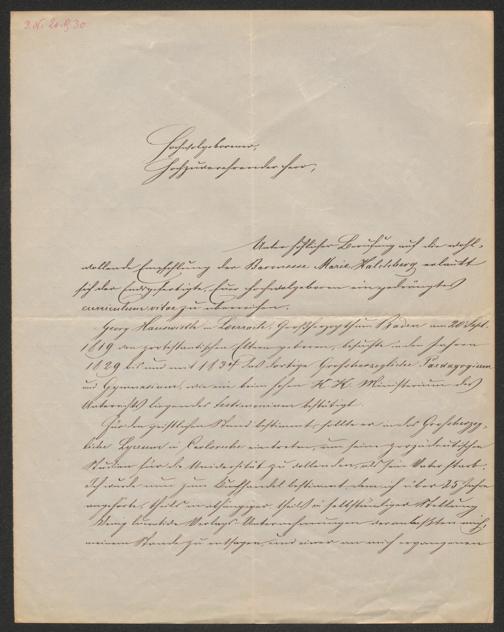 Hochwolgeborner,
Hochzuverehrender Herr,
Unter höflicher Berufung auf die wohl-
wollende Empfehlung der Baronesse Marie erlaubt
sich der Endesgefertigte, Euer Hochwolgeboren ein gedrängtes
curriculum vitae zu überreichen.
Georg in Großherzogthum Baden am 20 Sept.
1819 von protestantischen Eltern geboren, besuchte in den Jahren
1829 bis und mit 1834 das dortige Großherzogliche Paedagogium
und Gymnasium, wie ein beim hohen K. K. Ministerium des
Unterrichts liegendes testimonium bestätigt.
Für den geistlichen Stand bestimmt, sollte er in das Großherzog-
liche Lyceum in Carlsruhe eintreten, um seine
Studien für die Universität zu vollenden, als sein Vater starb.
Ich wurde nun zum Buchhandel bestimmt, dem ich über 25 Jahre
angehörte, theils in abhängiger, theils in selbständiger Stellung.
Verlags-Unternehmungen veranlaßten mich,
meinem Stande zu entsagen, und einer an mich ergangenen